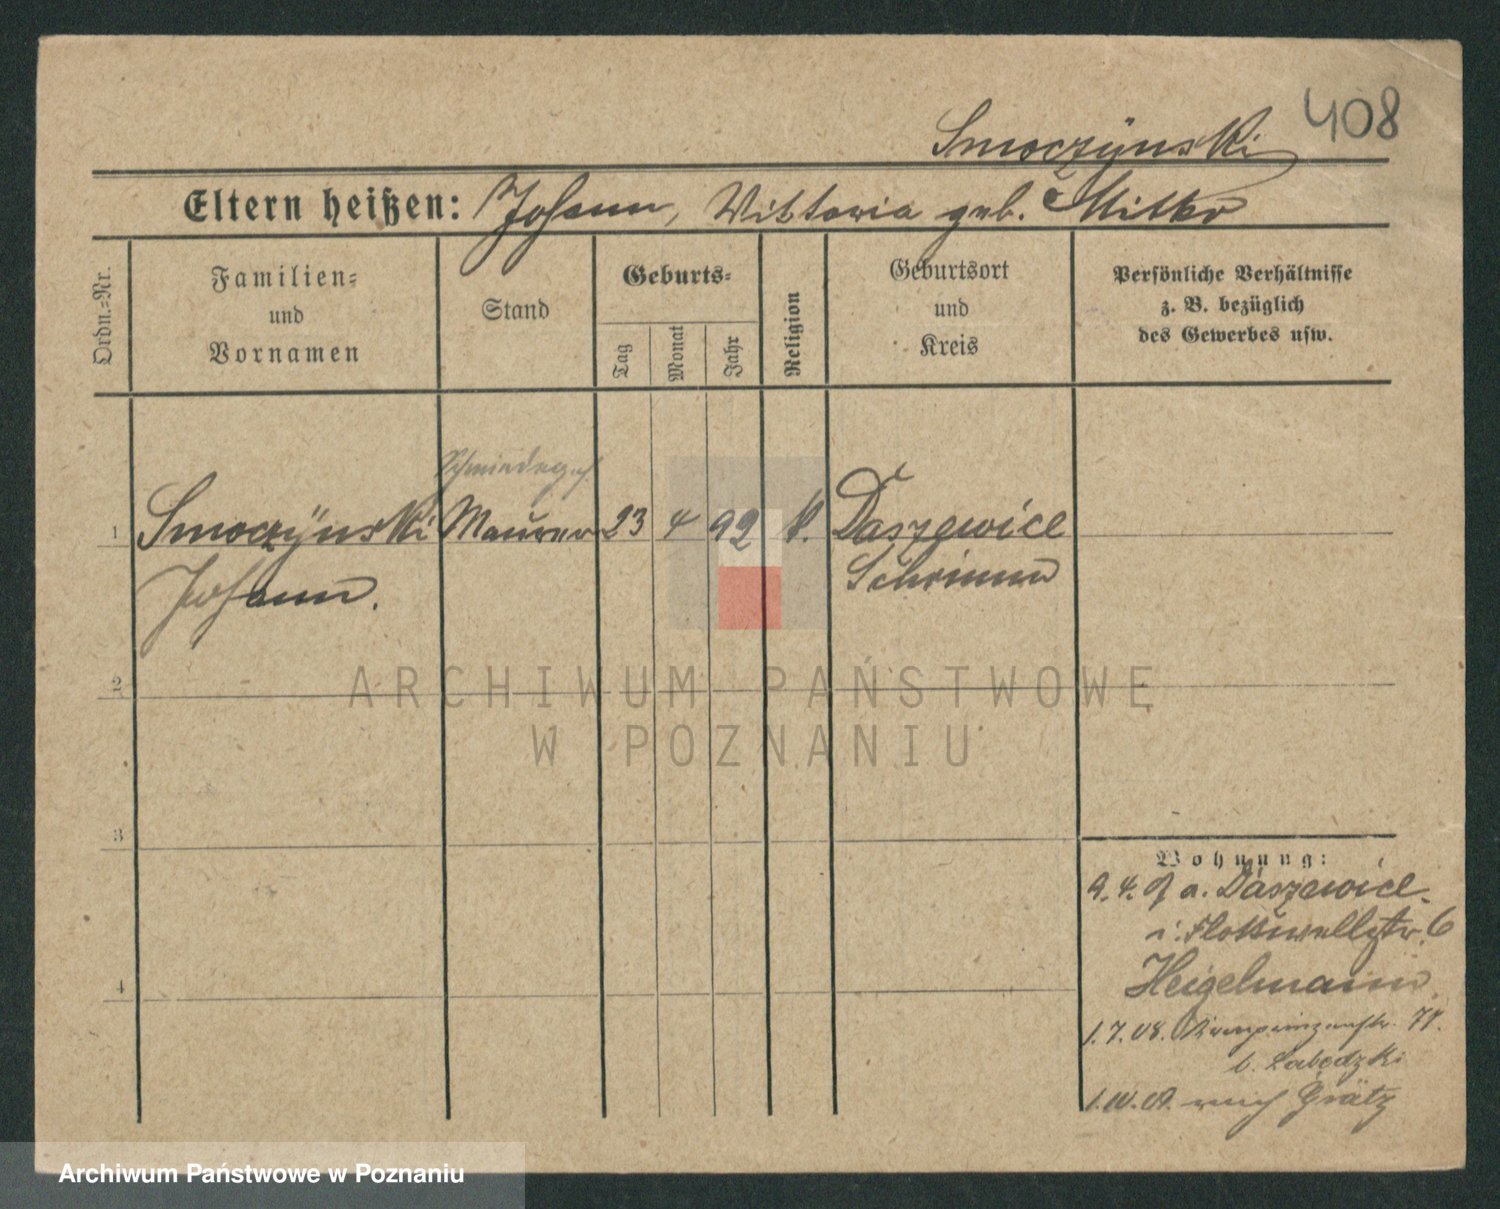 408
Smoczÿnski
Eltern heißen: Johann, Wiktoria geb. Mitko
Ordn.-Nr.
Familien-
und
Vornamen
Stand
Geburts-
Tag
Monat
Jahr
Religion
Geburtsort
und
Kreis
Persönliche Verhältnisse
z. B. bezüglich
des Gewerbes usw.
Schmiedegs.
1 Smoczÿnski Maurer 23 4 92 k. Daszewice
Johann. Schrimm
2
3
4
Wohnung:
9. 4. 07 a. Daszewice
i. Flottwellstr. 6
Heigelmann
1. 7. 08. Kronprinzenstr. 77.
b. Labedzki
1. 10. 09. nach Grätz
ARCHIWUM PAŃSTWOWE
W POZNANIU
Archiwum Państwowe w Poznaniu